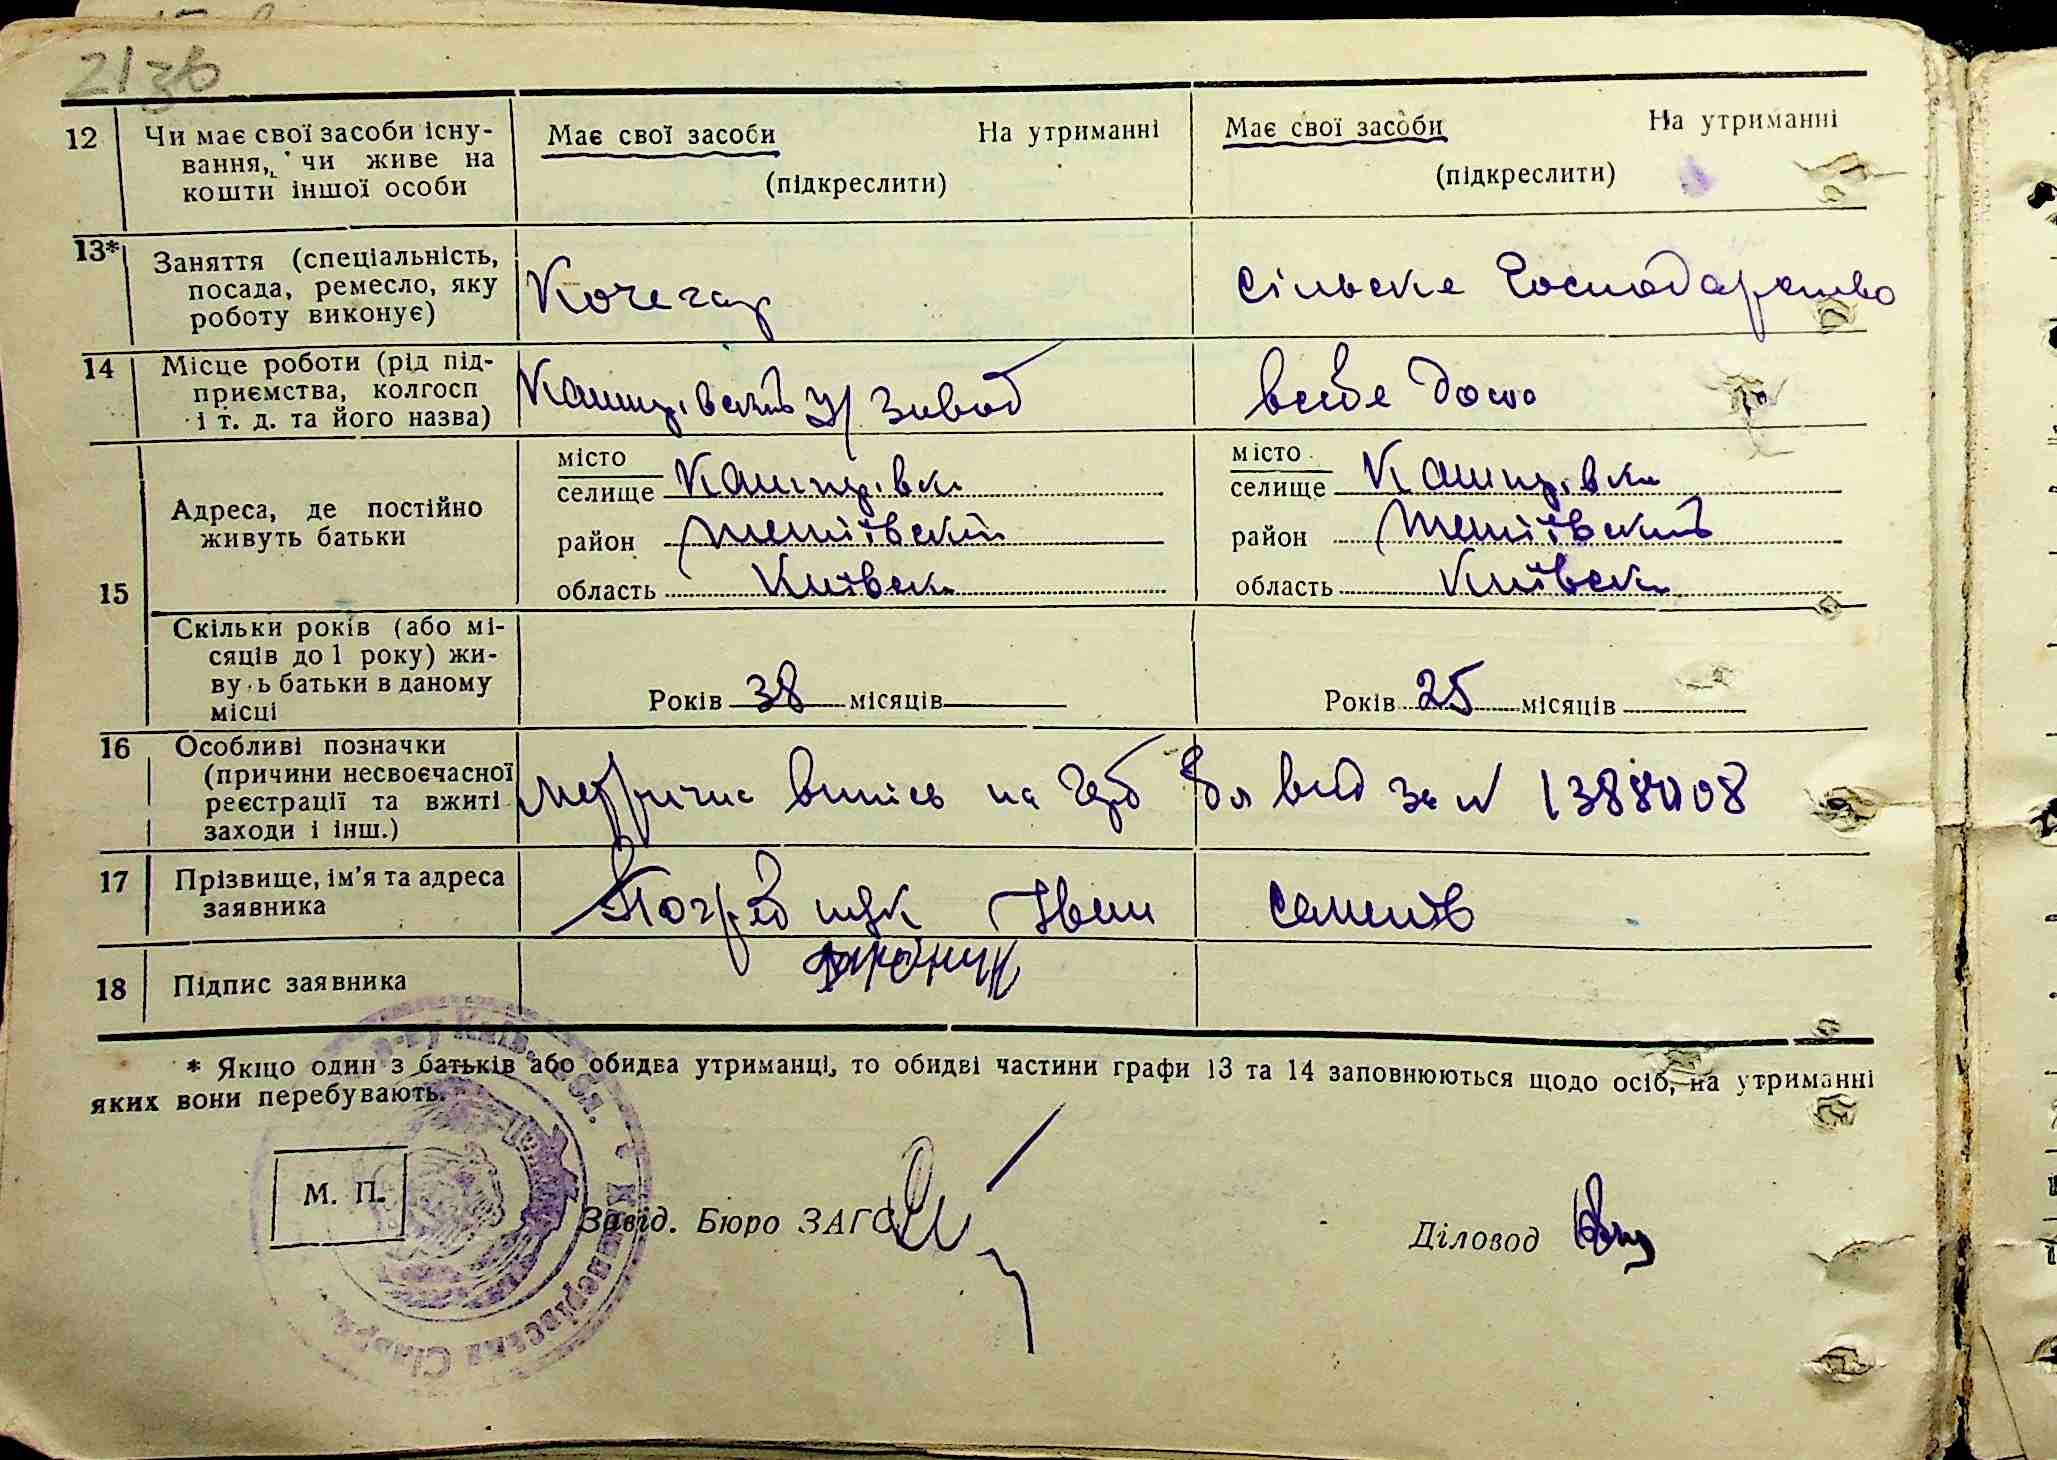 213б
12 Чи має свої засоби існу- Має свої засоби На утриманні Має свої засоби На утриманні
вання, чи живе на (підкреслити) (підкреслити)
кошти іншої особи
13* Заняття (спеціальність, Кочегар сільське Господарство
посада, ремесло, яку
роботу виконує)
14 Місце роботи (рід під- Кашперівський завод дома
приємства, колгосп
і т. д. та його назва)
15 Адреса, де постійно живуть батьки
місто
селище Кашперівка
район Тетіївський
область Київська
місто
селище Кашперівка
район Тетіївський
область Київська
Скільки років (або мі-
сяців до 1 року) жи-
ву ь батьки в даному
місці
Років 38 місяців
Років 25 місяців
16 Особливі позначки
(причини несвоєчасної
реєстрації та вжиті
заходи і інш.)
Метрична випись на за №
17 Прізвище, ім'я та адреса
заявника
Іван
18 Підпис заявника
* Якщо один з батьків або обидва утриманці, то обидві частини графи 13 та 14 заповнюються щодо осіб, на утриманні
яких вони перебувають.
М. П.
Завід. Бюро ЗАГС
Діловод